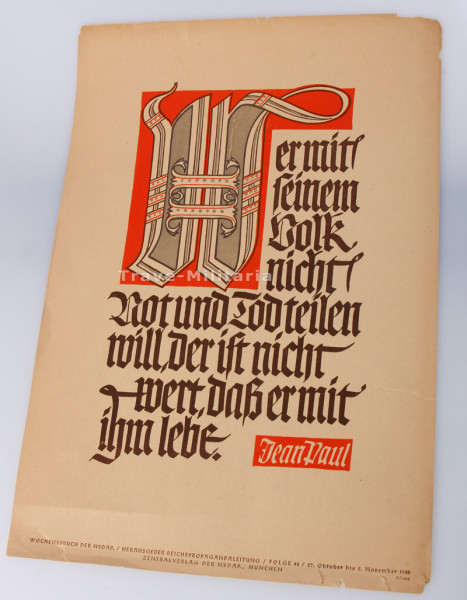 Wer mit
seinem
Volk
nicht
Not und Tod teilen
will, der ist nicht
wert, daß er mit
ihm lebe.
Jean Paul
Trave-Militaria
WOCHENSPRUCH DER NSDAP. / HERAUSGEBER REICHSPROPAGANDALEITUNG / FOLGE 44 / 27. Oktober bis 2. November 1940
ZENTRALVERLAG DER NSDAP., MÜNCHEN